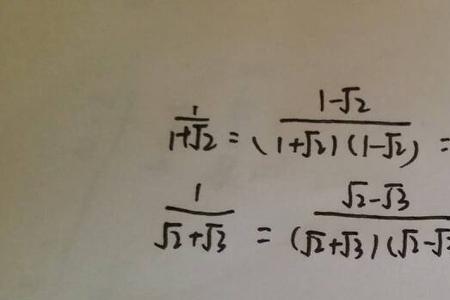 1/(1+√2) = (1-√2)/((1+√2)(1-√2)) =
1/(√2+√3) = (√2-√3)/((√2+√3)(√2-√